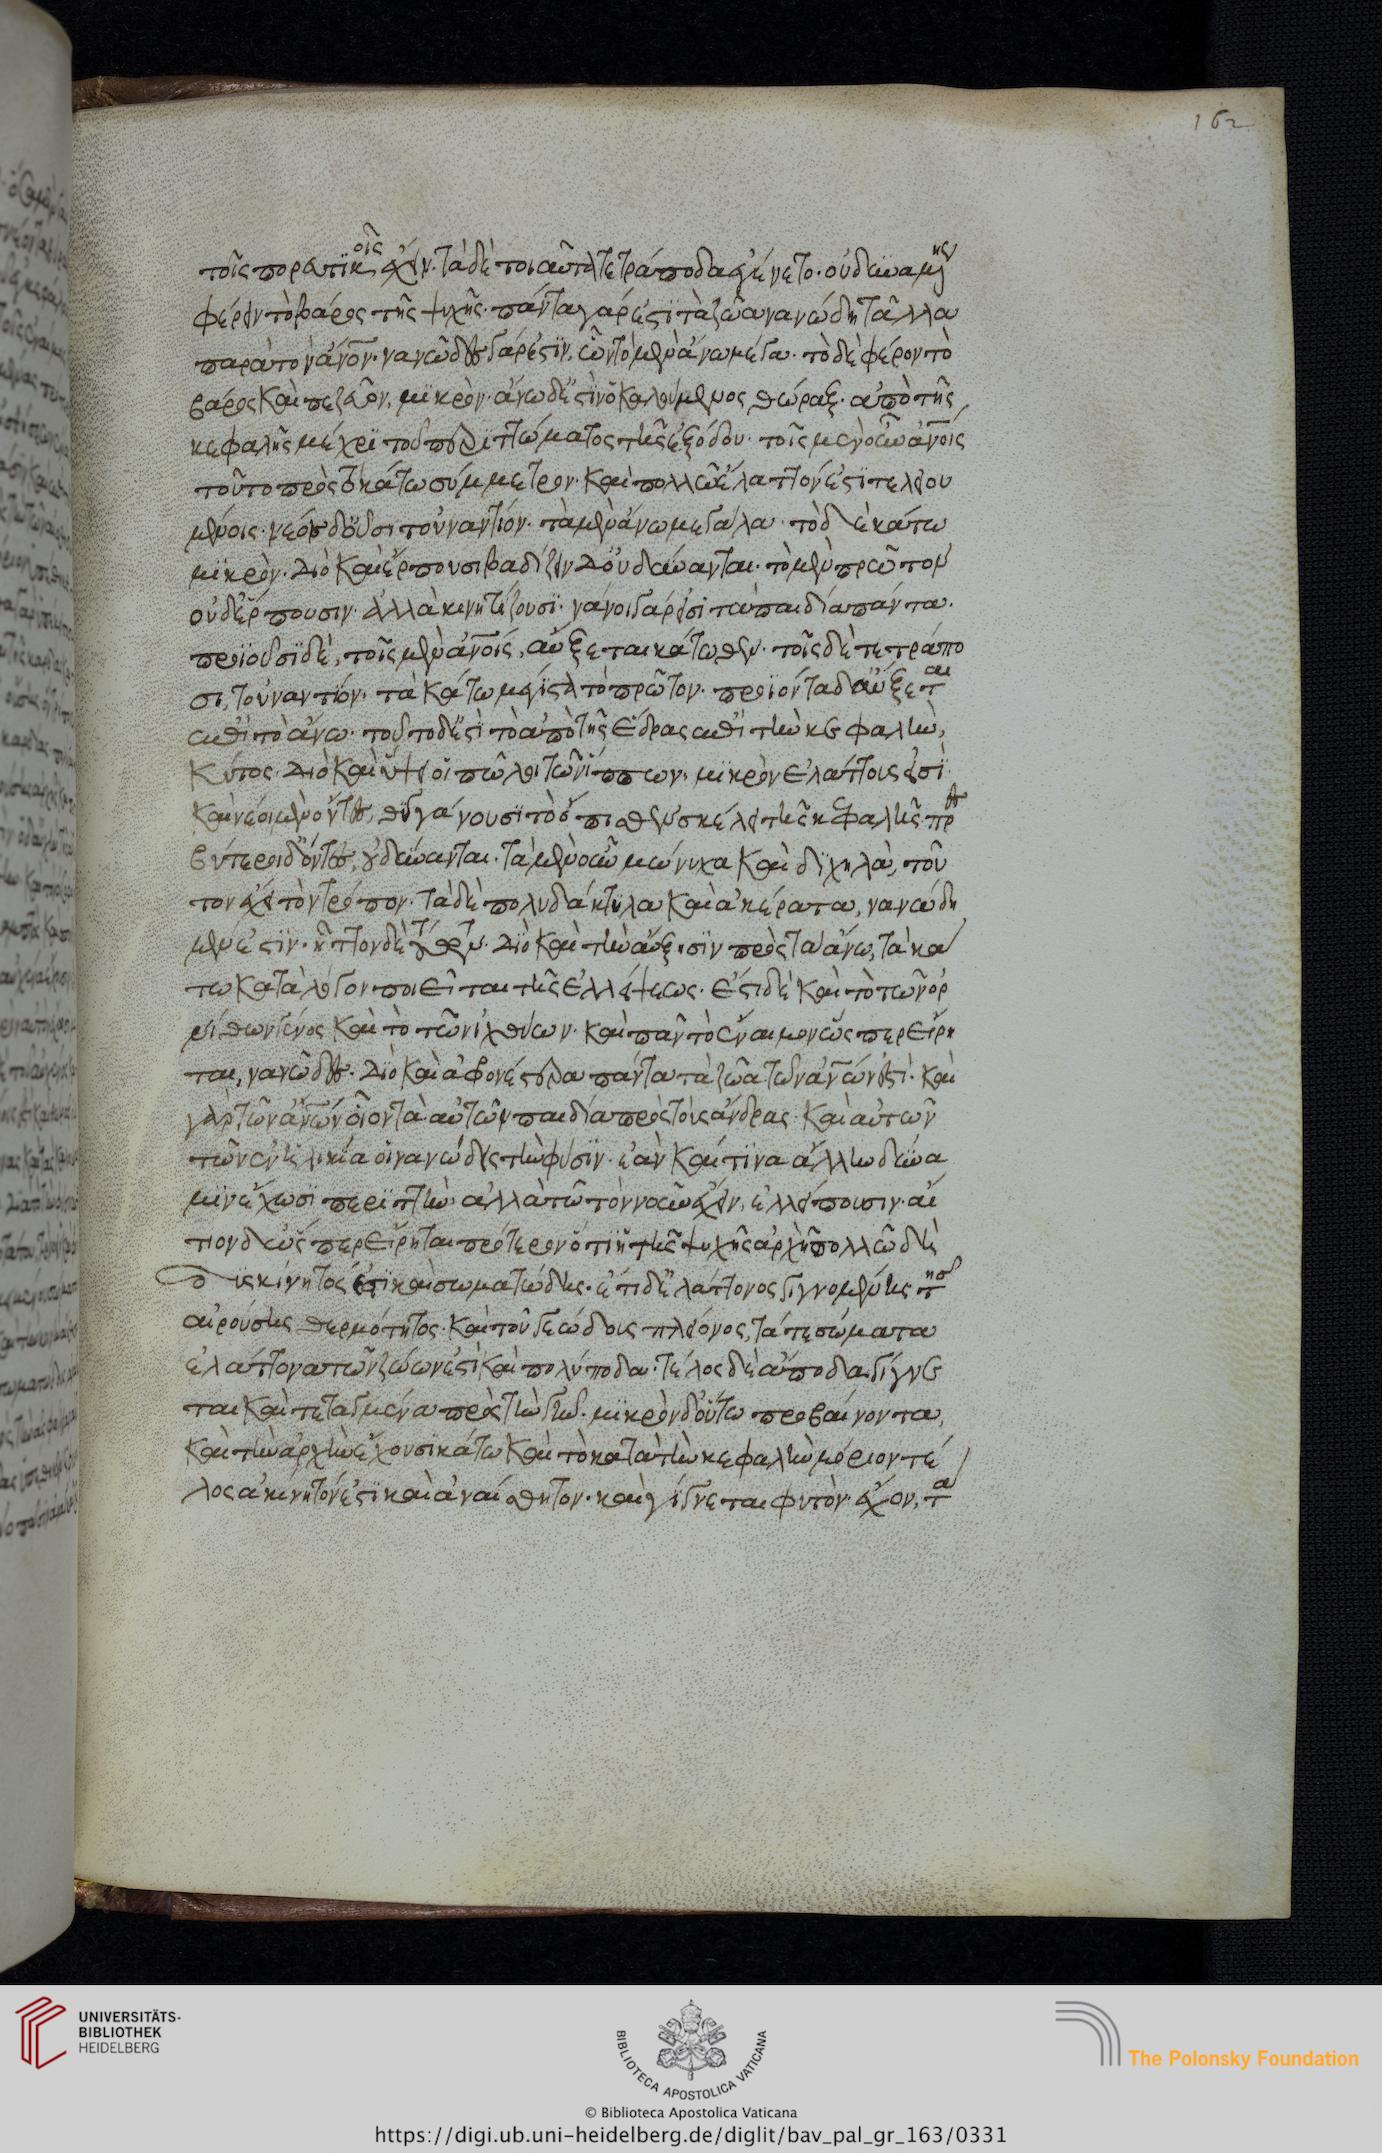 162
τοῖς πορευτικοῖς ἔχειν. τὰ δὲ τοιαῦτα τετράποδα ἐγένετο. οὐ δυναμένης
φέρειν τὸ βάρος τῆς ψυχῆς. πάντα γάρ ἐστι τὰ ζῶα νανώδη τἆλλα
παρὰ τὸν ἄνον. νανῶδες γάρ ἐστιν, οὗ τὸ μὲν ἄνω μέγα. τὸ δὲ φέρον τὸ
βάρος καὶ πεζεῦον, μικρόν. ἄνω δ' ἐστὶν ὁ καλούμενος θώραξ. ἀπὸ τῆς
κεφαλῆς μέχρι τοῦ περιττώματος τῆς ἐξόδου. τοῖς μὲν οὖν ἀνοις
τοῦτο πρὸς τὸ κάτω σύμμετρον. καὶ πολλῶ ἔλαττόν ἐστι τελειου
μένοις. νέοις δ' οὖσι τοὐναντίον. τὰ μὲν ἄνω μεγάλα. τὸ δὲ κάτω
μικρόν. διὸ καὶ ἕρπουσι βαδίζειν δ' οὐ δύνανται. τὸ μὲν πρῶτον
οὐδ' ἕρπουσιν. ἀλλ' ἀκινητίζουσι. νάνοι γάρ εἰσι τὰ παιδία πάντα.
προϊοῦσι δὲ, τοῖς μὲν ἀνοις, αὔξεται κάτωθεν. τοῖς δὲ τετράπο
σι, τοὐναντίον. τὰ κάτω μέγιστα τὸ πρῶτον. προϊόντα δ' αὔξεται
ἐπὶ τὸ ἄνω. τοῦτο δ' ἐστὶ τὸ ἀπὸ τῆς ἕδρας ἐπὶ τὴν κεφαλὴν,
κύτος. διὸ καὶ ὕψει οἱ πῶλοι τῶν ἵππων, μικρὸν ἐλάττους εἰσὶ.
καὶ νέοι μὲν ὄντες, θιγγάνουσι τῶ ὄπισθεν σκέλει τῆς κεφαλῆς πρεσ
βύτεροι δ' ὄντες, οὐ δύνανται. τὰ μὲν οὖν μώνυχα καὶ δίχηλα, τοῦ
τον ἔχει τὸν τρόπον. τὰ δὲ πολυδάκτυλα καὶ ἀκέρατα, νανώδη
μέν ἐστιν. ἧττον δὲ τούτων. διὸ καὶ τὴν αὔξησιν πρὸς τὰ ἄνω, τὰ κά
τω κατὰ λόγον ποιεῖται τῆς ἐλλείψεως. ἔστι δὲ καὶ τὸ τῶν ὀρ
νίθων γένος καὶ τὸ τῶν ἰχθύων. καὶ πᾶν τὸ ἔναιμον ὥσπερ εἴρη
ται, νανῶδες. διὸ καὶ ἀφρονέστερα πάντα τὰ ζῶα τῶν ἀνων ἐστί. καὶ
γὰρ τῶν ἀνων οἷον τά τε παιδία πρὸς τοὺς ἄνδρας. καὶ αὐτῶν
τῶν ἐν ἡλικία οἱ νανώδεις τὴν φύσιν. ἐὰν καί τινα ἄλλην δύνα
μιν ἔχωσι περιττήν. ἀλλὰ τῶ τὸν νοῦν ἔχειν, ἐλλείπουσιν. αἴ
τιον δ' ὥσπερ εἴρηται πρότερον ὅτι ἡ τῆς ψυχῆς ἀρχὴ πολλῶ δὴ
δυσκίνητός ἐστι καὶ σωματώδης. ἔτι δ' ἐλάττονος γιγνομένης τῆς
αἰρούσης θερμότητος. καὶ τοῦ γεώδους πλείονος, τά τε σώματα
ἐλάττονα τῶν ζώων ἐστὶ καὶ πολύποδα. τέλος δὲ ἄποδα γίγνε
ται καὶ τεταγμένα πρὸς τὴν γῆν. μικρὸν δ' οὕτω προβαίνοντα,
καὶ τὴν ἀρχὴν ἔχουσι κάτω καὶ τὸ κατὰ τὴν κεφαλὴν μόριον τέ
λος ἀκίνητόν ἐστι καὶ ἀναίσθητον. καὶ γίγνεται φυτὸν. ἔχον, τὰ
UNIVERSITÄTS-
BIBLIOTHEK
HEIDELBERG
BIBLIOTECA APOSTOLICA VATICANA
The Polonsky Foundation
© Biblioteca Apostolica Vaticana
https://digi.ub.uni-heidelberg.de/diglit/bav_pal_gr_163/0331